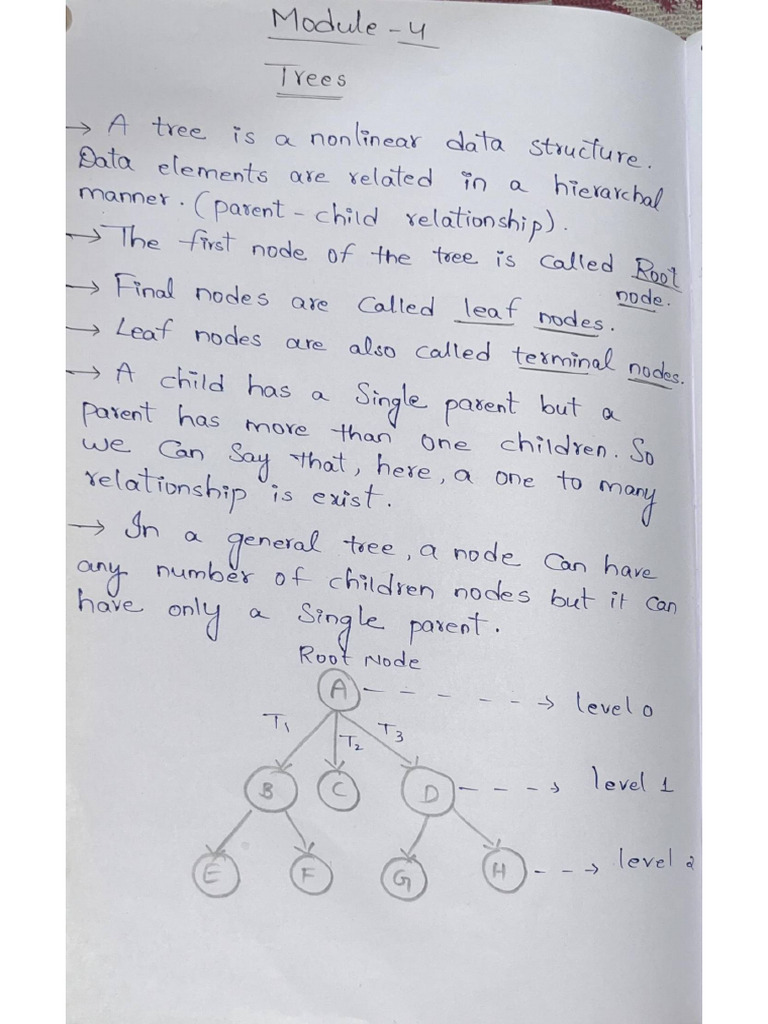 Module - 4
Trees
→ A tree is a nonlinear data structure.
Data elements are related in a hierarchal
manner. (parent - child relationship).
→ The first node of the tree is called Root
node.
→ Final nodes are called leaf nodes.
→ Leaf nodes are also called terminal nodes.
→ A child has a Single parent but a
parent has more than one children. So
we can say that, here, a one to many
relationship is exist.
→ In a general tree, a node can have
any number of children nodes but it can
have only a Single parent.
Root Node
A - - - - - - → level 0
T1 T2 T3
B C D - - - → level 1
E F G H - - → level 2